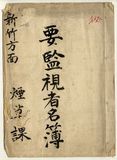 新竹方面
要監視者名簿
煙草課